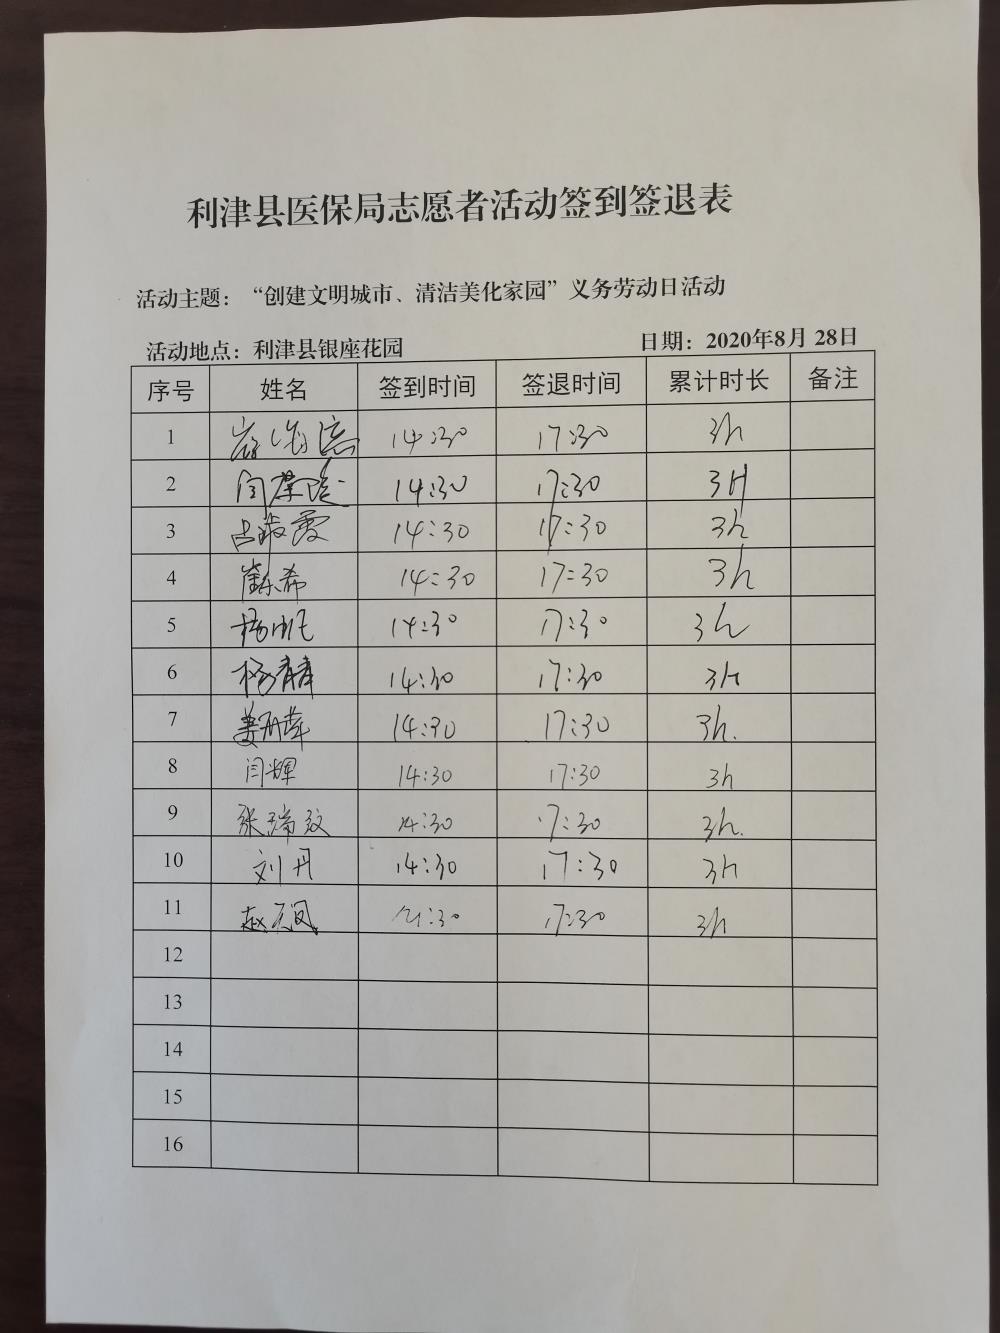 利津县医保局志愿者活动签到签退表
活动主题：“创建文明城市、清洁美化家园”义务劳动日活动
活动地点：利津县银座花园 日期：2020年8月 28日
序号 姓名 签到时间 签退时间 累计时长 备注
1 14:30 17:30 3h
2 14:30 17:30 3H
3 14:30 17:30 3h
4 崔东希 14:30 17:30 3h
5 14:30 17:30 3h
6 杨青青 14:30 17:30 3h
7 姜丽萍 14:30 17:30 3h.
8 闫辉 14:30 17:30 3h
9 张瑞玟 14:30 17:30 3h.
10 刘丹 14:30 17:30 3h
11 14:30 17:30 3h
12
13
14
15
16